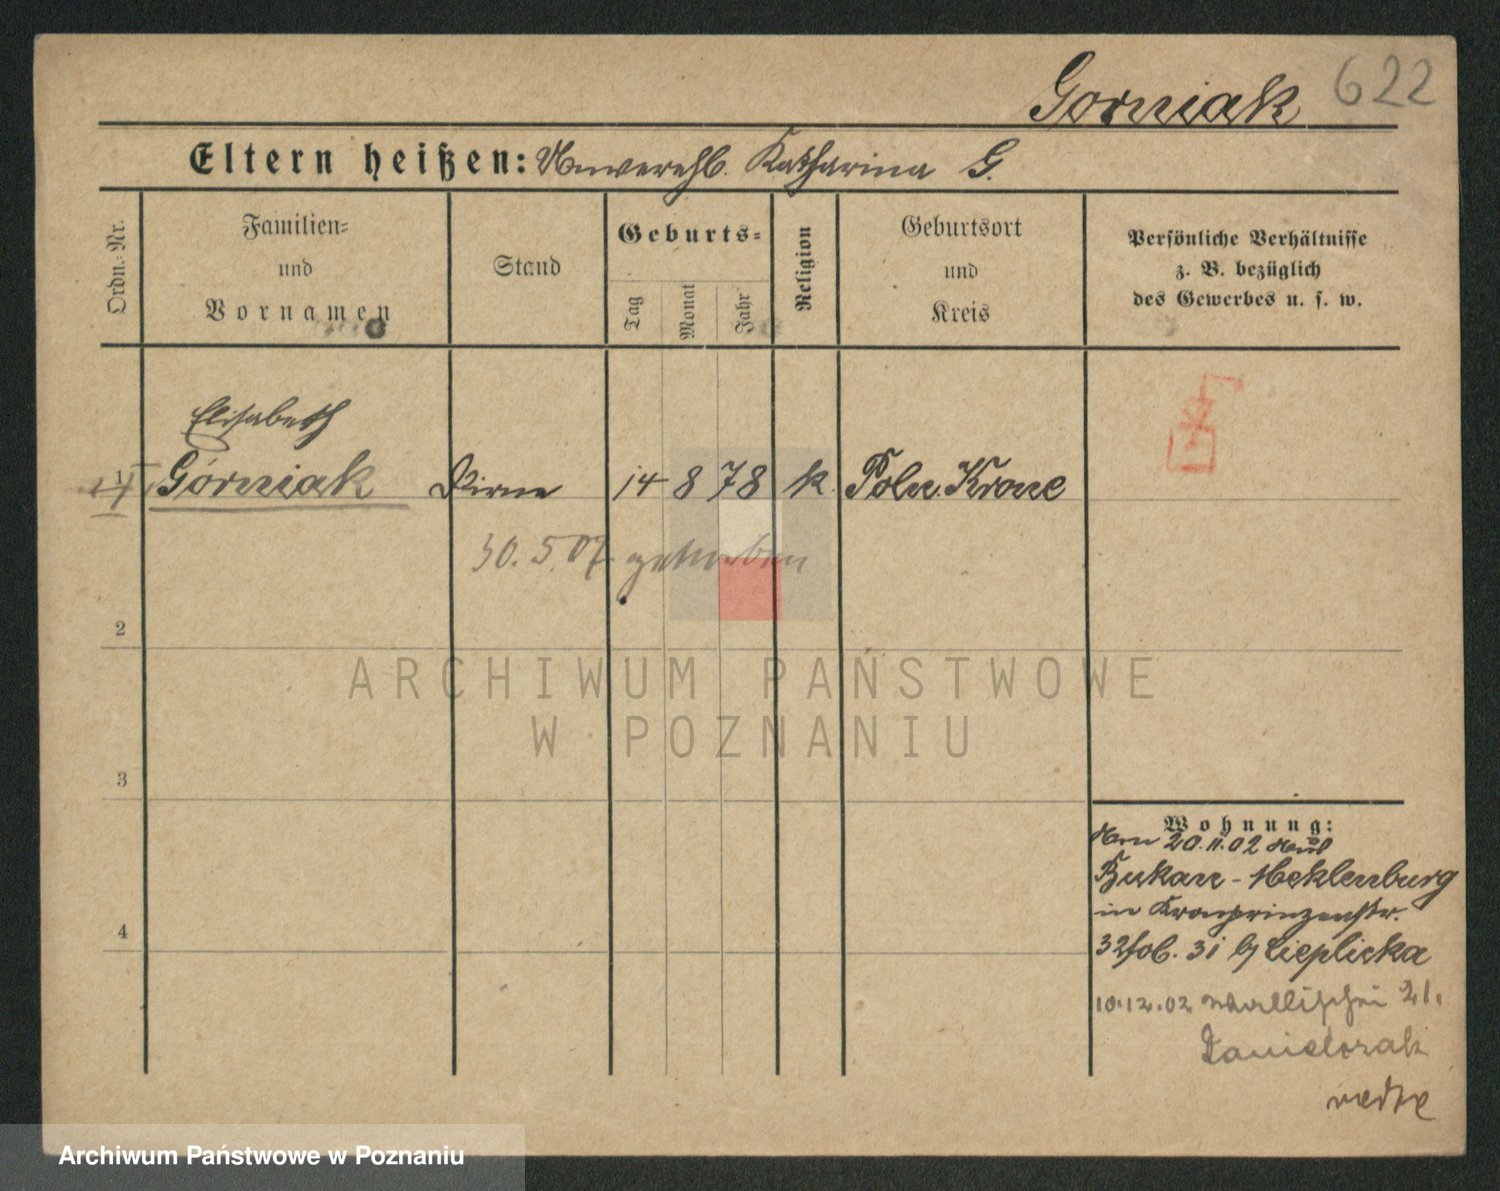 Gorniak 622
Eltern heißen: Unverehl. Katharina G.
Ordn.-Nr.
Familien-
und
Vornamen
Stand
Geburts-
Tag
Monat
Jahr
Religion
Geburtsort
und
Kreis
Persönliche Verhältnisse
z. B. bezüglich
des Gewerbes u. s. w.
Elisabeth
1 Górniak Dirne 14 8 78 k. Poln. Krone
30. 5. 07 gestorben
2
3
4
Wohnung:
20.11.02
Bukan - Meklenburg
in Kronprinzenstr.
32 31 Cieplicka
10.12.02 Wallischei 21.
Danielczak
ARCHIWUM PAŃSTWOWE
W POZNANIU
Archiwum Państwowe w Poznaniu